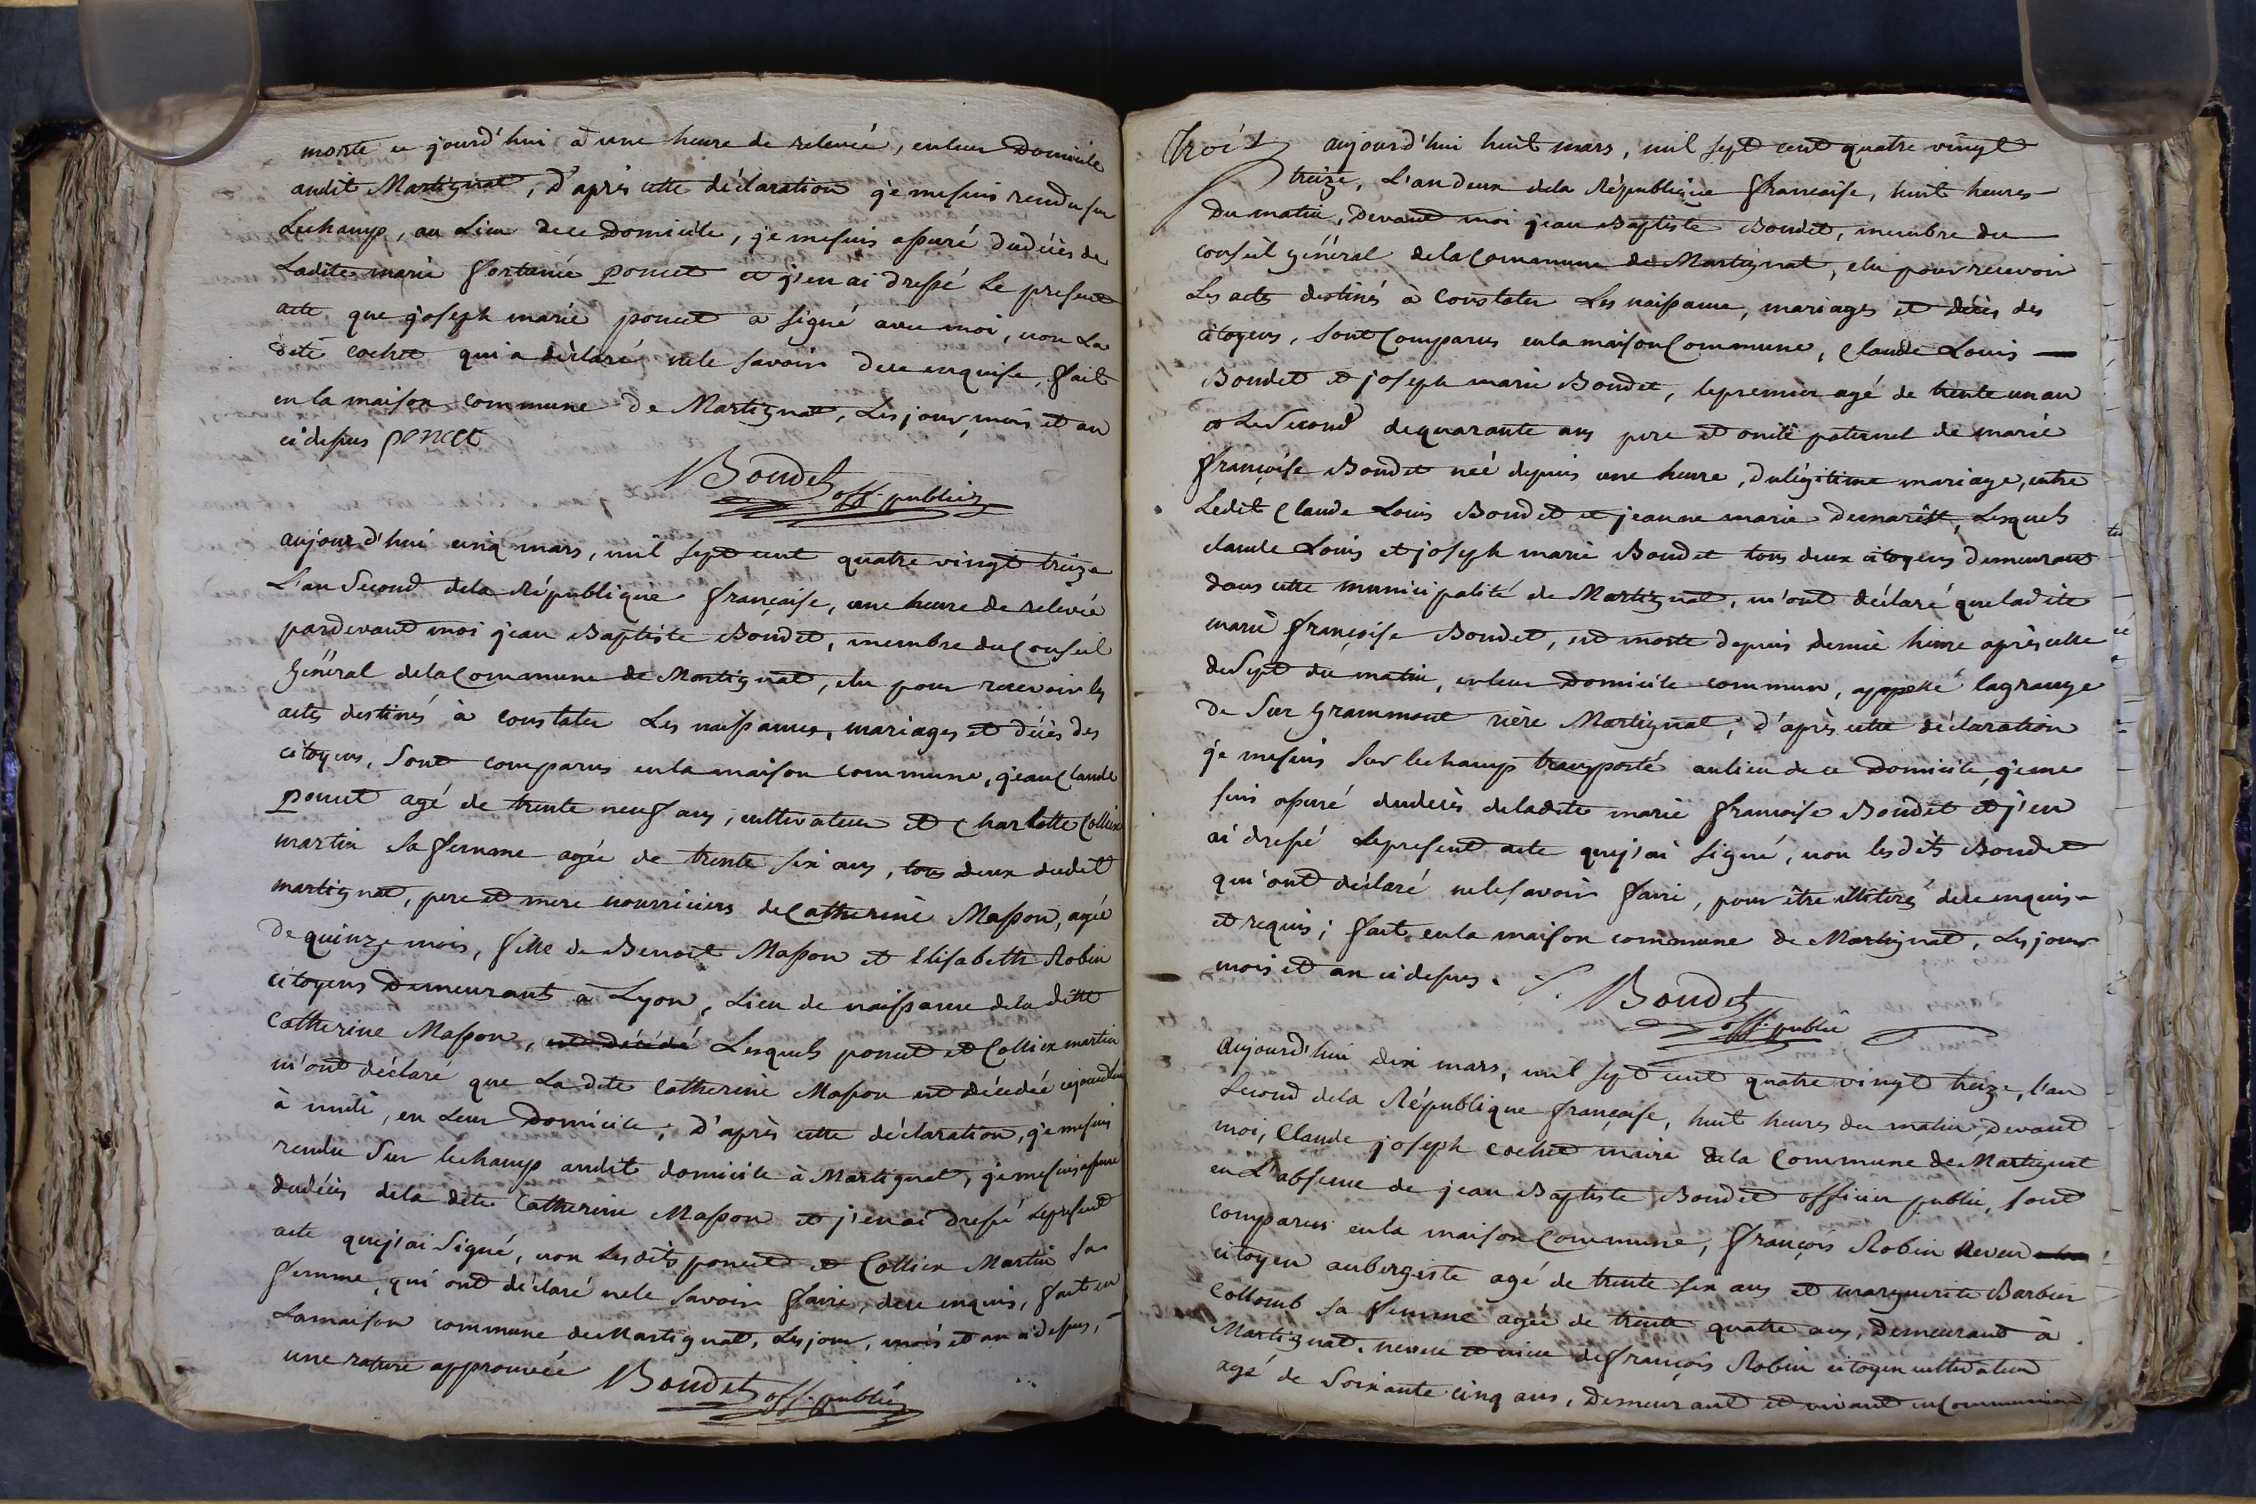 morte ce jourd'hui à une heure de relevée, enleur Domicile
audit Martignat, D'après cette déclaration je mesuis rendu sur
Lechamp, au Lieu dece Domicile, je mesuis assuré dudécès de
Ladite marie fortunée poncet et j'en ai dressé Le present
acte que joseph marie poncet a signé avec moi, non La
dite cochet qui a déclaré nele savoir dece enquise, fait
en la maison commune de Martignat, Les jour, mois et an
cidessus poncet
Boudet off. public
aujourd'hui cinq mars, mil sept cent quatre vingt treize
L'an Second dela République française, une heure de relevée
pardevant moi jean Baptiste Boudet, membre du Conseil
Général dela Commune de Martignat, elu pour recevoir les
actes destinés à constater Les naissances, mariages et décès des
citoyens, Sont comparus enla maison commune, jean Claude
poncet agé de trente neuf ans, cultivateur et Charlotte Collix
martin Sa femme agée de trente six ans, tous deux dudit
martignat, pere et mere nourriciers de Catherine Masson, agée
De quinze mois, fille de Benoit Masson et Elisabeth Robin
citoyens Demeurants à Lyon, Lieu de naissance dela ditte
Catherine Masson, est décédé Lesquels poncet et Collix martin
m'ont déclaré que La dite Catherine Masson est décédée cejourd'hui
à midi, en Leur Domicile, D'après cette déclaration, je mesuis
rendu Sur lechamp audit domicile à Martignat, je mesuis assuré
dudécès dela dite Catherine Masson et j'en ai dressé Lepresent
acte quej'ai Signé, non les dits poncet et Collix Martin sa
femme, qui ont déclaré nele savoir faire, dece enquis, fait en
Lamaison commune de Martignat, Les jour, mois et an cidessus,
une rature approuvée Boudet off. public
Trois aujourd'hui huit mars, mil sept cent quatre vingt
treize, L'an deux dela République française, huit heures
Du matin, Devant moi jean Baptiste Boudet, membre du
conseil général dela Commune de Martignat, elu pour recevoir
Les actes destinés à Constater Les naissance, mariages et décès des
citoyens, sont Comparus enla maison Commune, Claude Louis
Boudet et joseph marie Boudet, lepremier agé de trente un an
et LeSecond dequarante ans pere et oncle paternel de marie
françoise Boudet née depuis une heure, Dulégitime mariage, entre
Ledit Claude Louis Boudet et jeanne marie Demarêst, Lesquels
claude Louis et joseph marie Boudet tous deux citoyens demeurant
dans cette municipalité de Martignat, m'ont déclaré queladite
marie françoise Boudet, est morte depuis demie heure après celle
deSept du matin, enleur Domicile commun, appellé lagrange
De Sur Grammont rière Martignat, d'après cette déclaration
je mesuis Sur lechamps transporté aulieu de ce Domicile, jeme
suis assuré dudecès deladite marie françoise Boudet et j'en
ai dressé Lepresent acte quej'ai Signé, non lesdits Boudet
qui ont déclaré nelesavoir faire, pour être illitérés dece enquis
et requis; fait enla maison commune de Martignat, Les jour
mois et an cidessus. Boudet
off. public
Aujourd'hui dix mars, mil sept cent quatre vingt treize, l'an
Second dela République française, huit heures du matin, devant
moi, Claude joseph cochet maire dela Commune de Martignat
en L'absence de jean Baptiste Boudet officier public, sont
comparus enla maison Commune, françois Robin neveu
citoyen aubergiste agé de trente six ans et marguerite Barbier
Collomb sa femme agée de trente quatre ans, Demeurant à
Martignat, neveu et niece defrançois Robin citoyen cultivateur
agé de Soixante cinq ans, Demeurant et vivant en Communion